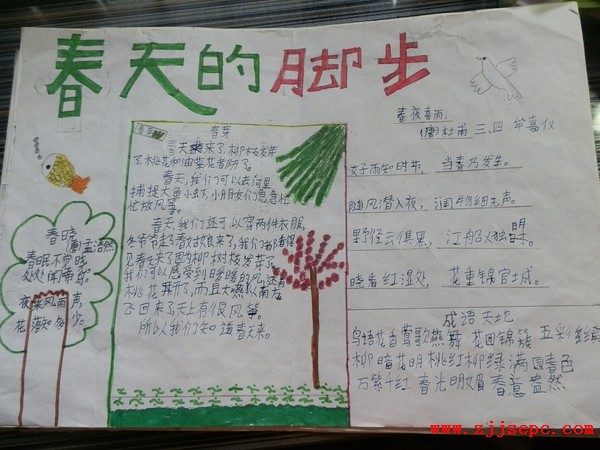 春天的脚步
春芽
春天来了,柳树发芽
了桃花和油菜花都开了。
春天,我们可以去河里
捕捉大鱼小虾,小朋友们急急忙
忙放风筝。
春天,我们还可以穿两件衣服,
我们可以感受到暖暖的风,还有
桃花开了,而且大燕从南方
飞回来了,天上有很风筝。
所以我们知道春天来。
春晓
(唐)孟浩然
春眠不觉晓
处处闻啼鸟。
夜来风雨声,
花落知多少。
春夜喜雨
(唐)杜甫 三、四
好雨知时节,当春乃发生。
随风潜入夜,润物细无声。
野径云俱黑,江船火独明
晓看红湿处,花重锦官城。
成语天地
鸟语花香 莺歌燕舞 花团锦簇 五彩缤纷
柳暗花明 桃红柳绿 满园春色
万紫千红 春光明媚 春意盎然
www.zjjsepc.com